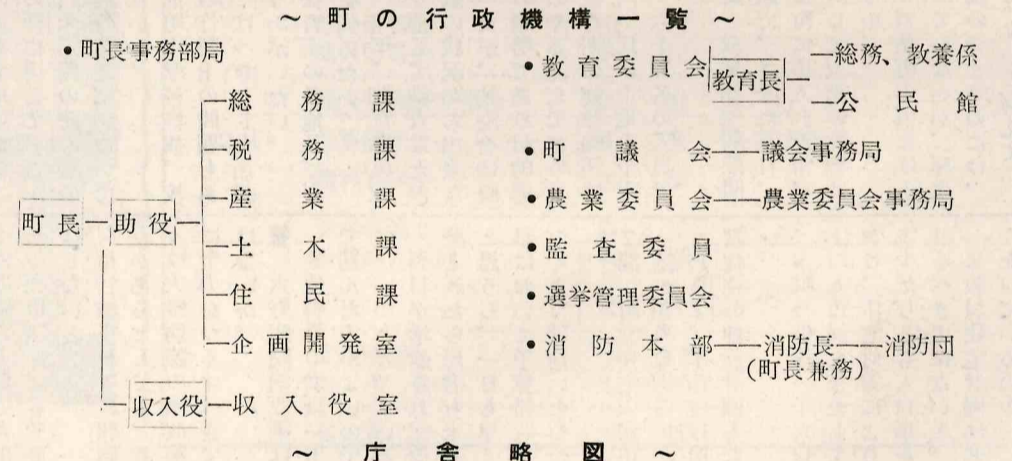 ～町の行政機構一覧～
•町長事務部局
町長
助役
総務課
税務課
産業課
土木課
住民課
企画開発室
収入役
収入役室
•教育委員会
教育長
総務、教養係
公民館
•町議会
議会事務局
•農業委員会
農業委員会事務局
•監査委員
•選挙管理委員会
•消防本部
消防長
消防団
(町長兼務)
～庁舎略図～